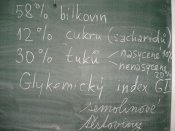 58% bílkovin
12% cukru (sacharidů)
30% tuků < nasycené 10%
nenasycené 20%
Glykemický index GI
semolinové
těstoviny